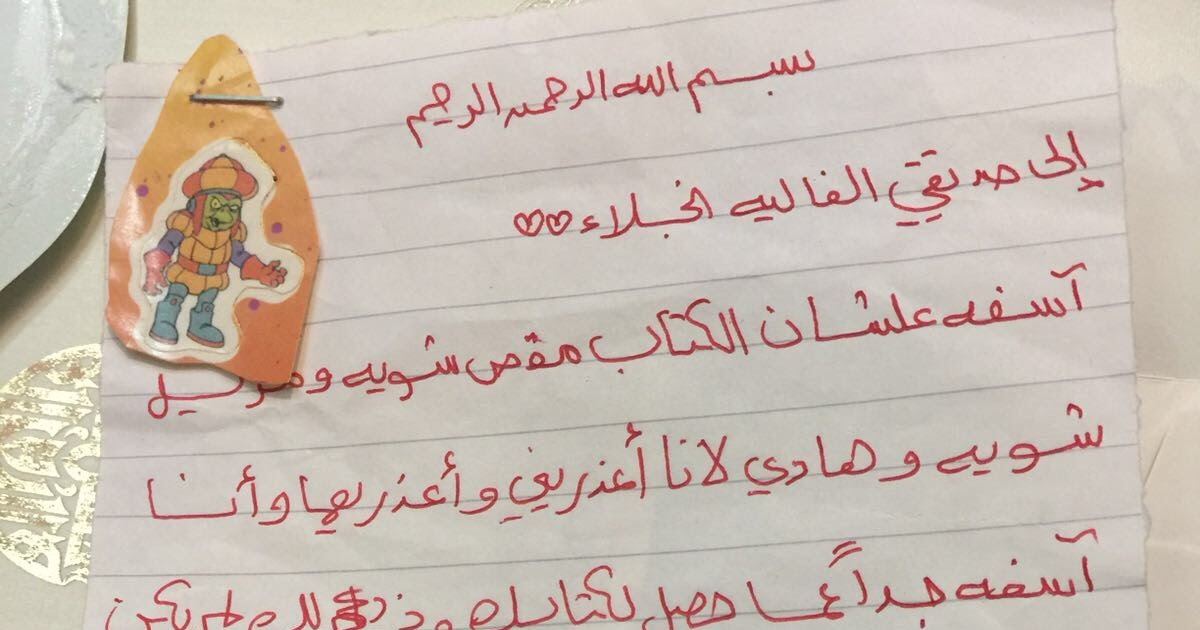 بسم الله الرحمن الرحيم
إلى صديقتي الغاليه الخبلاء
آسفه علشان الكتاب مقص شويه
شويه و هادي لانا أعذريني وأعذريها وأنا
آسفه جداً عما حصل لكتابك